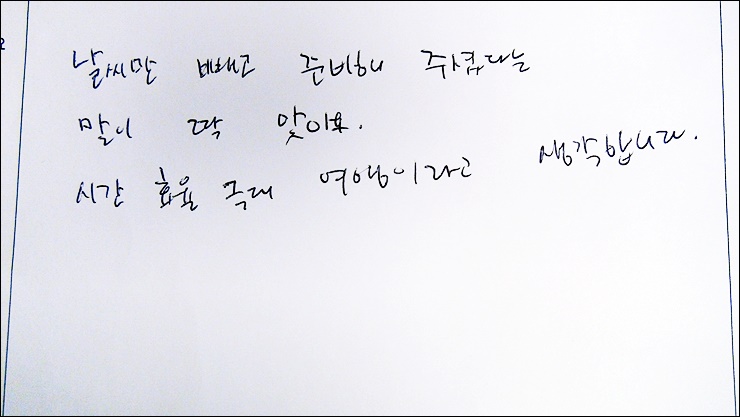 날씨만 빼고 준비해 주셨다는
말이 딱 맞아요.
시간 효율 극대 여행이라고 생각합니다.